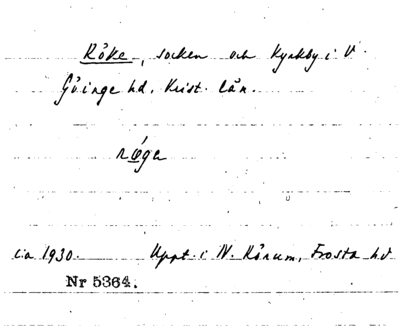 Röke, socken och kyrkby i V.
Göinge hd. Krist. län.
röga
ca 1930. Uppt. i N. Rörum, Frosta hd
Nr 5364.